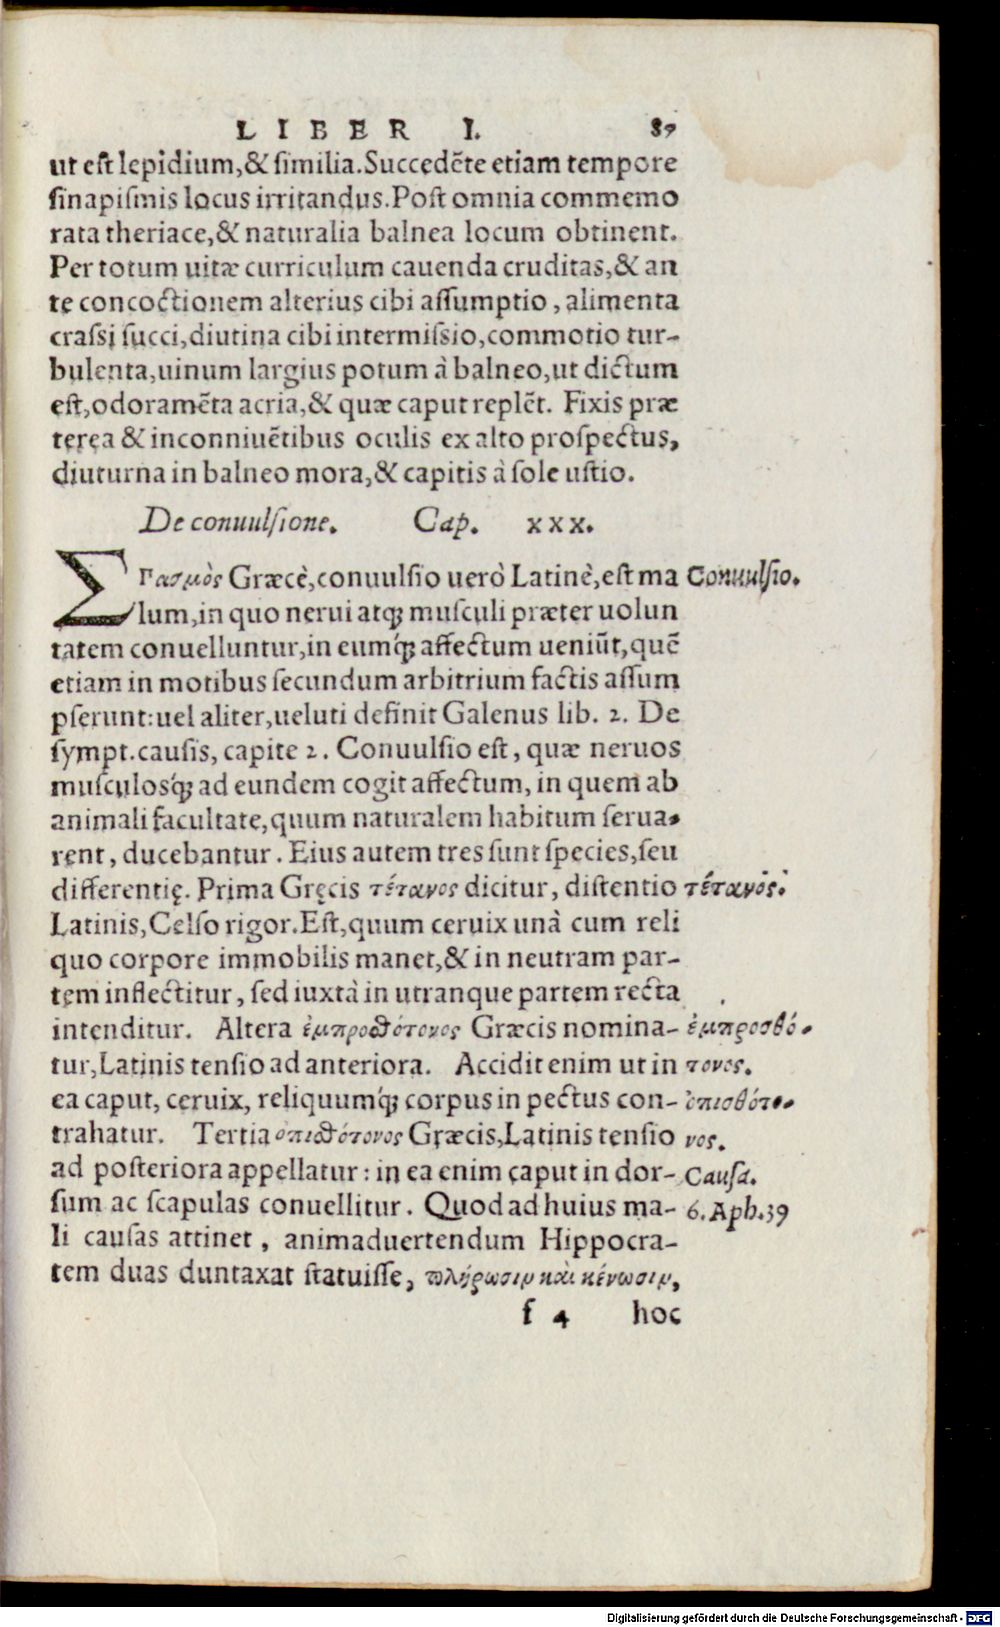 LIBER I. 87
ut est lepidium,& similia.Succedēte etiam tempore
sinapismis locus irritandus.Post omnia commemo
rata theriace,& naturalia balnea locum obtinent.
Per totum uitæ curriculum cauenda cruditas,& an
te concoctionem alterius cibi assumptio, alimenta
crassi succi,diutina cibi intermissio,commotio tur-
bulenta,uinum largius potum à balneo,ut dictum
est,odoramēta acria,& quæ caput replēt. Fixis præ
terea & inconniuētibus oculis ex alto prospectus,
diuturna in balneo mora,& capitis à sole ustio.
De conuulsione. Cap. xxx.
Σπασμὸς Græcè,conuulsio uerò Latinè,est ma Conuulsio.
lum,in quo nerui atq; musculi præter uolun
tatem conuelluntur,in eumq́; affectum ueniūt,quē
etiam in motibus secundum arbitrium factis assum
pserunt:uel aliter,ueluti definit Galenus lib. 2. De
sympt.causis, capite 2. Conuulsio est, quæ neruos
musculosq́; ad eundem cogit affectum, in quem ab
animali facultate,quum naturalem habitum serua-
rent, ducebantur. Eius autem tres sunt species,seu
differentię. Prima Gręcis τέτανος dicitur, distentio τέτανός.
Latinis,Celso rigor.Est,quum ceruix unà cum reli
quo corpore immobilis manet,& in neutram par-
tem inflectitur, sed iuxtà in utranque partem recta
intenditur. Altera ἐμπροσθότονος Græcis nomina- ἐμπροσθό-
tur,Latinis tensio ad anteriora. Accidit enim ut in τονος.
ea caput, ceruix, reliquumq́; corpus in pectus con- ὀπισθότο-
trahatur. Tertia ὀπισθότονος Græcis,Latinis tensio νος.
ad posteriora appellatur: in ea enim caput in dor- Causa.
sum ac scapulas conuellitur. Quod ad huius ma- 6. Aph.39
li causas attinet, animaduertendum Hippocra-
tem duas duntaxat statuisse, πλήρωσιν καὶ κένωσιν,
f 4 hoc
Digitalisierung gefördert durch die Deutsche Forschungsgemeinschaft - DFG